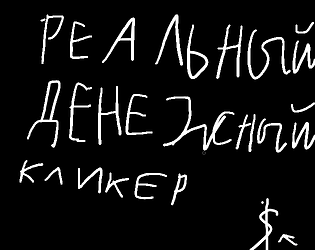 РЕАЛЬНЫЙ
ДЕНЕЖНЫЙ
КЛИКЕР
$